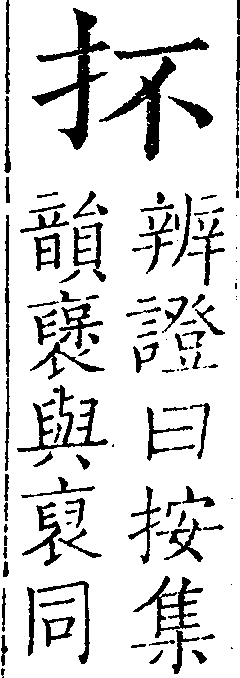 抔
辨證曰按集
韻襃與裒同